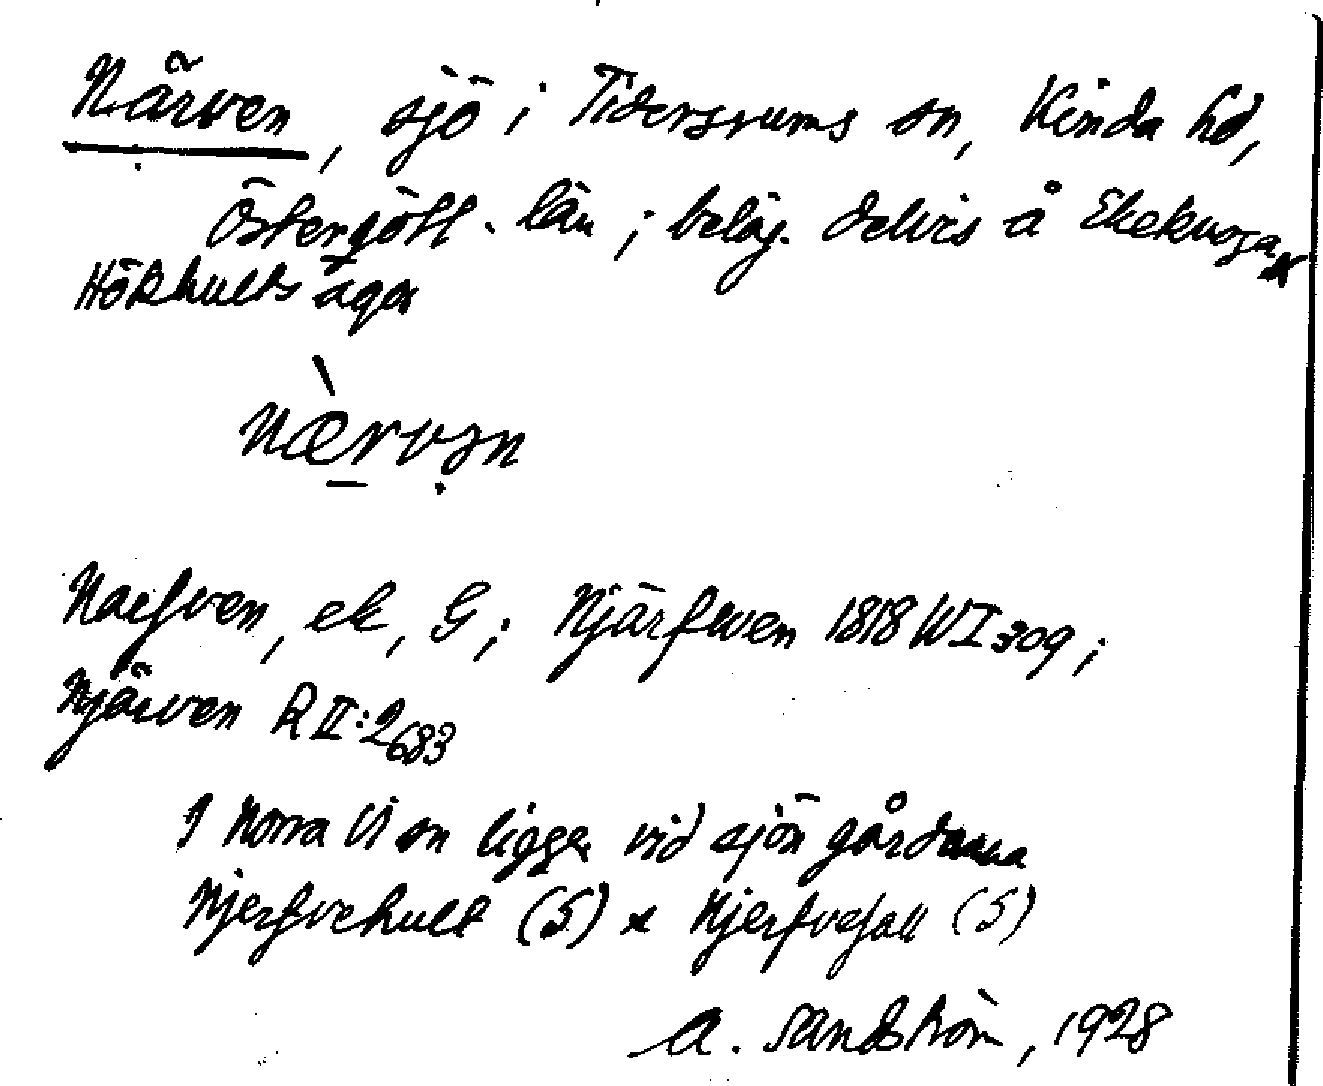 Närven, sjö i Tidersrums sn, Kinda hd,
Östergötl. län; beläg. delvis å Ekekurva x
Hökhults ägor
nærvən
Naefven, ek, G; Njärfwen 1818 WI 309;
Njärven R II:2 683
I Norra Vi sn ligger vid sjön gårdarna
Njerfvehult (S) x Njerfvefall (S)
A. Sandström, 1928